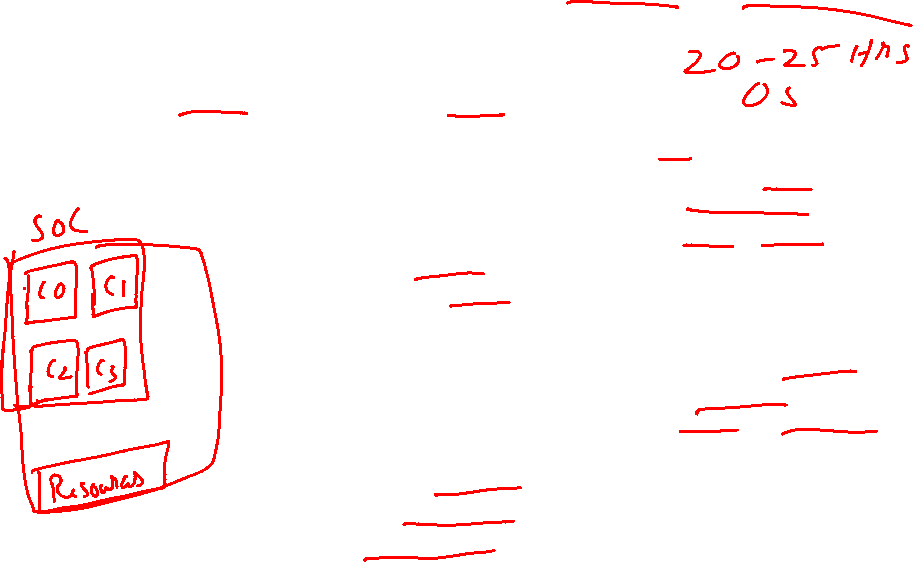 20-25 Hrs
OS
SOC
C0 C1
C2 C3
Resources